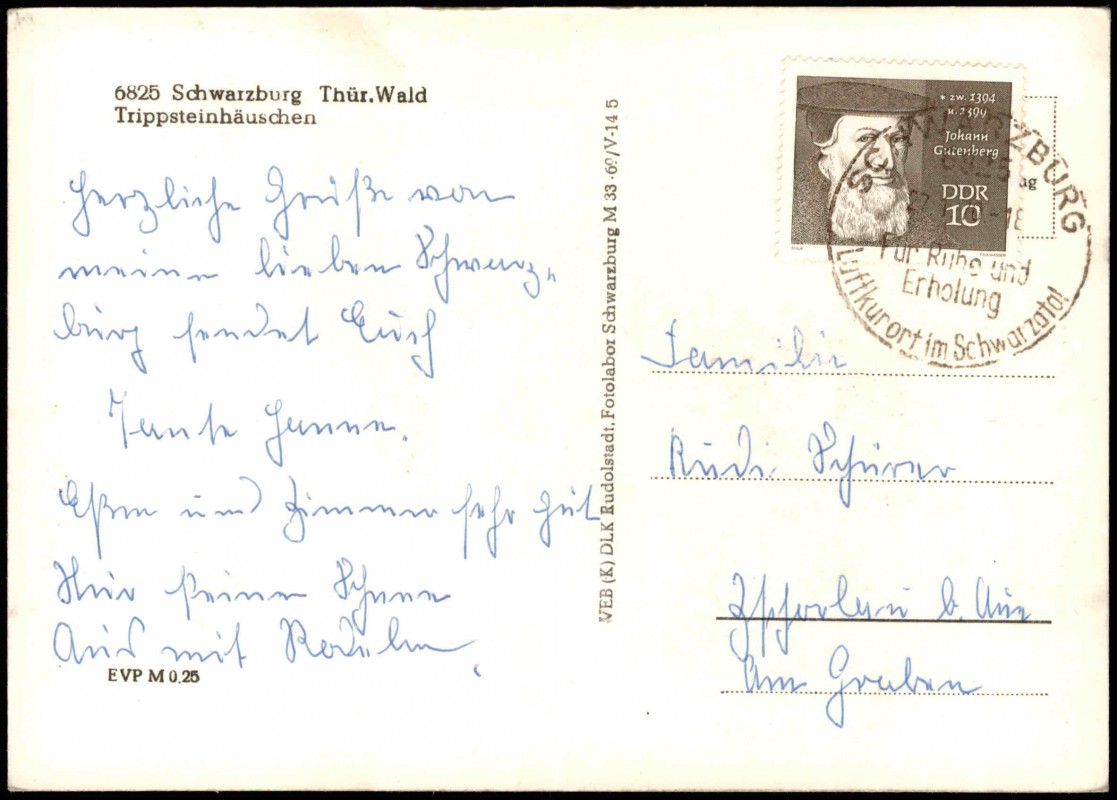 6825 Schwarzburg Thür.Wald
Trippsteinhäuschen
Herzliche Grüße von
meine lieben Schwarz-
burg sendet Euch
Tante Hanne.
Eßen und Zimmer sehr gut
Hier keinen Schnee
Aus mit Rodeln.
EVP M 0.25
VEB (K) DLK Rudolstadt, Fotolabor Schwarzburg M 33-69/V-14 5
* zw. 1394
u. 1399
Johann
Gutenberg
DDR
10
SCHWARZBURG
6825
27
-18
Für Ruhe und
Erholung
Luftkurort im Schwarzatal
Familie
Rudi Schürer
Zschorlau b. Aue
Am Graben